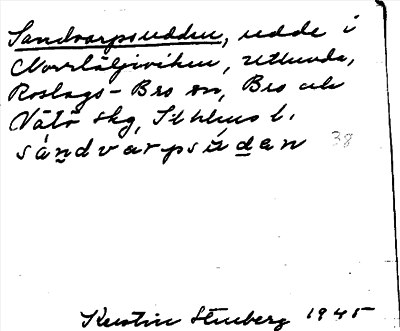 Sandvarpsudden, udde i
Norrtäljeviken, utlunda,
Roslags-Bro sn, Bro och
Vätö skg, Sthlms l.
sándvarpsùdan 38
Kerstin Stenberg 1945